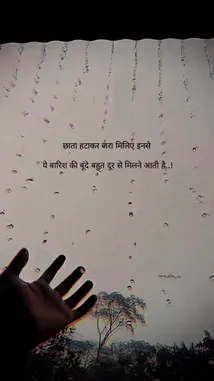 छाता हटाकर ज़रा मिलिए इनसे
ये बारिश की बूंदे बहुत दूर से मिलने आती है..!